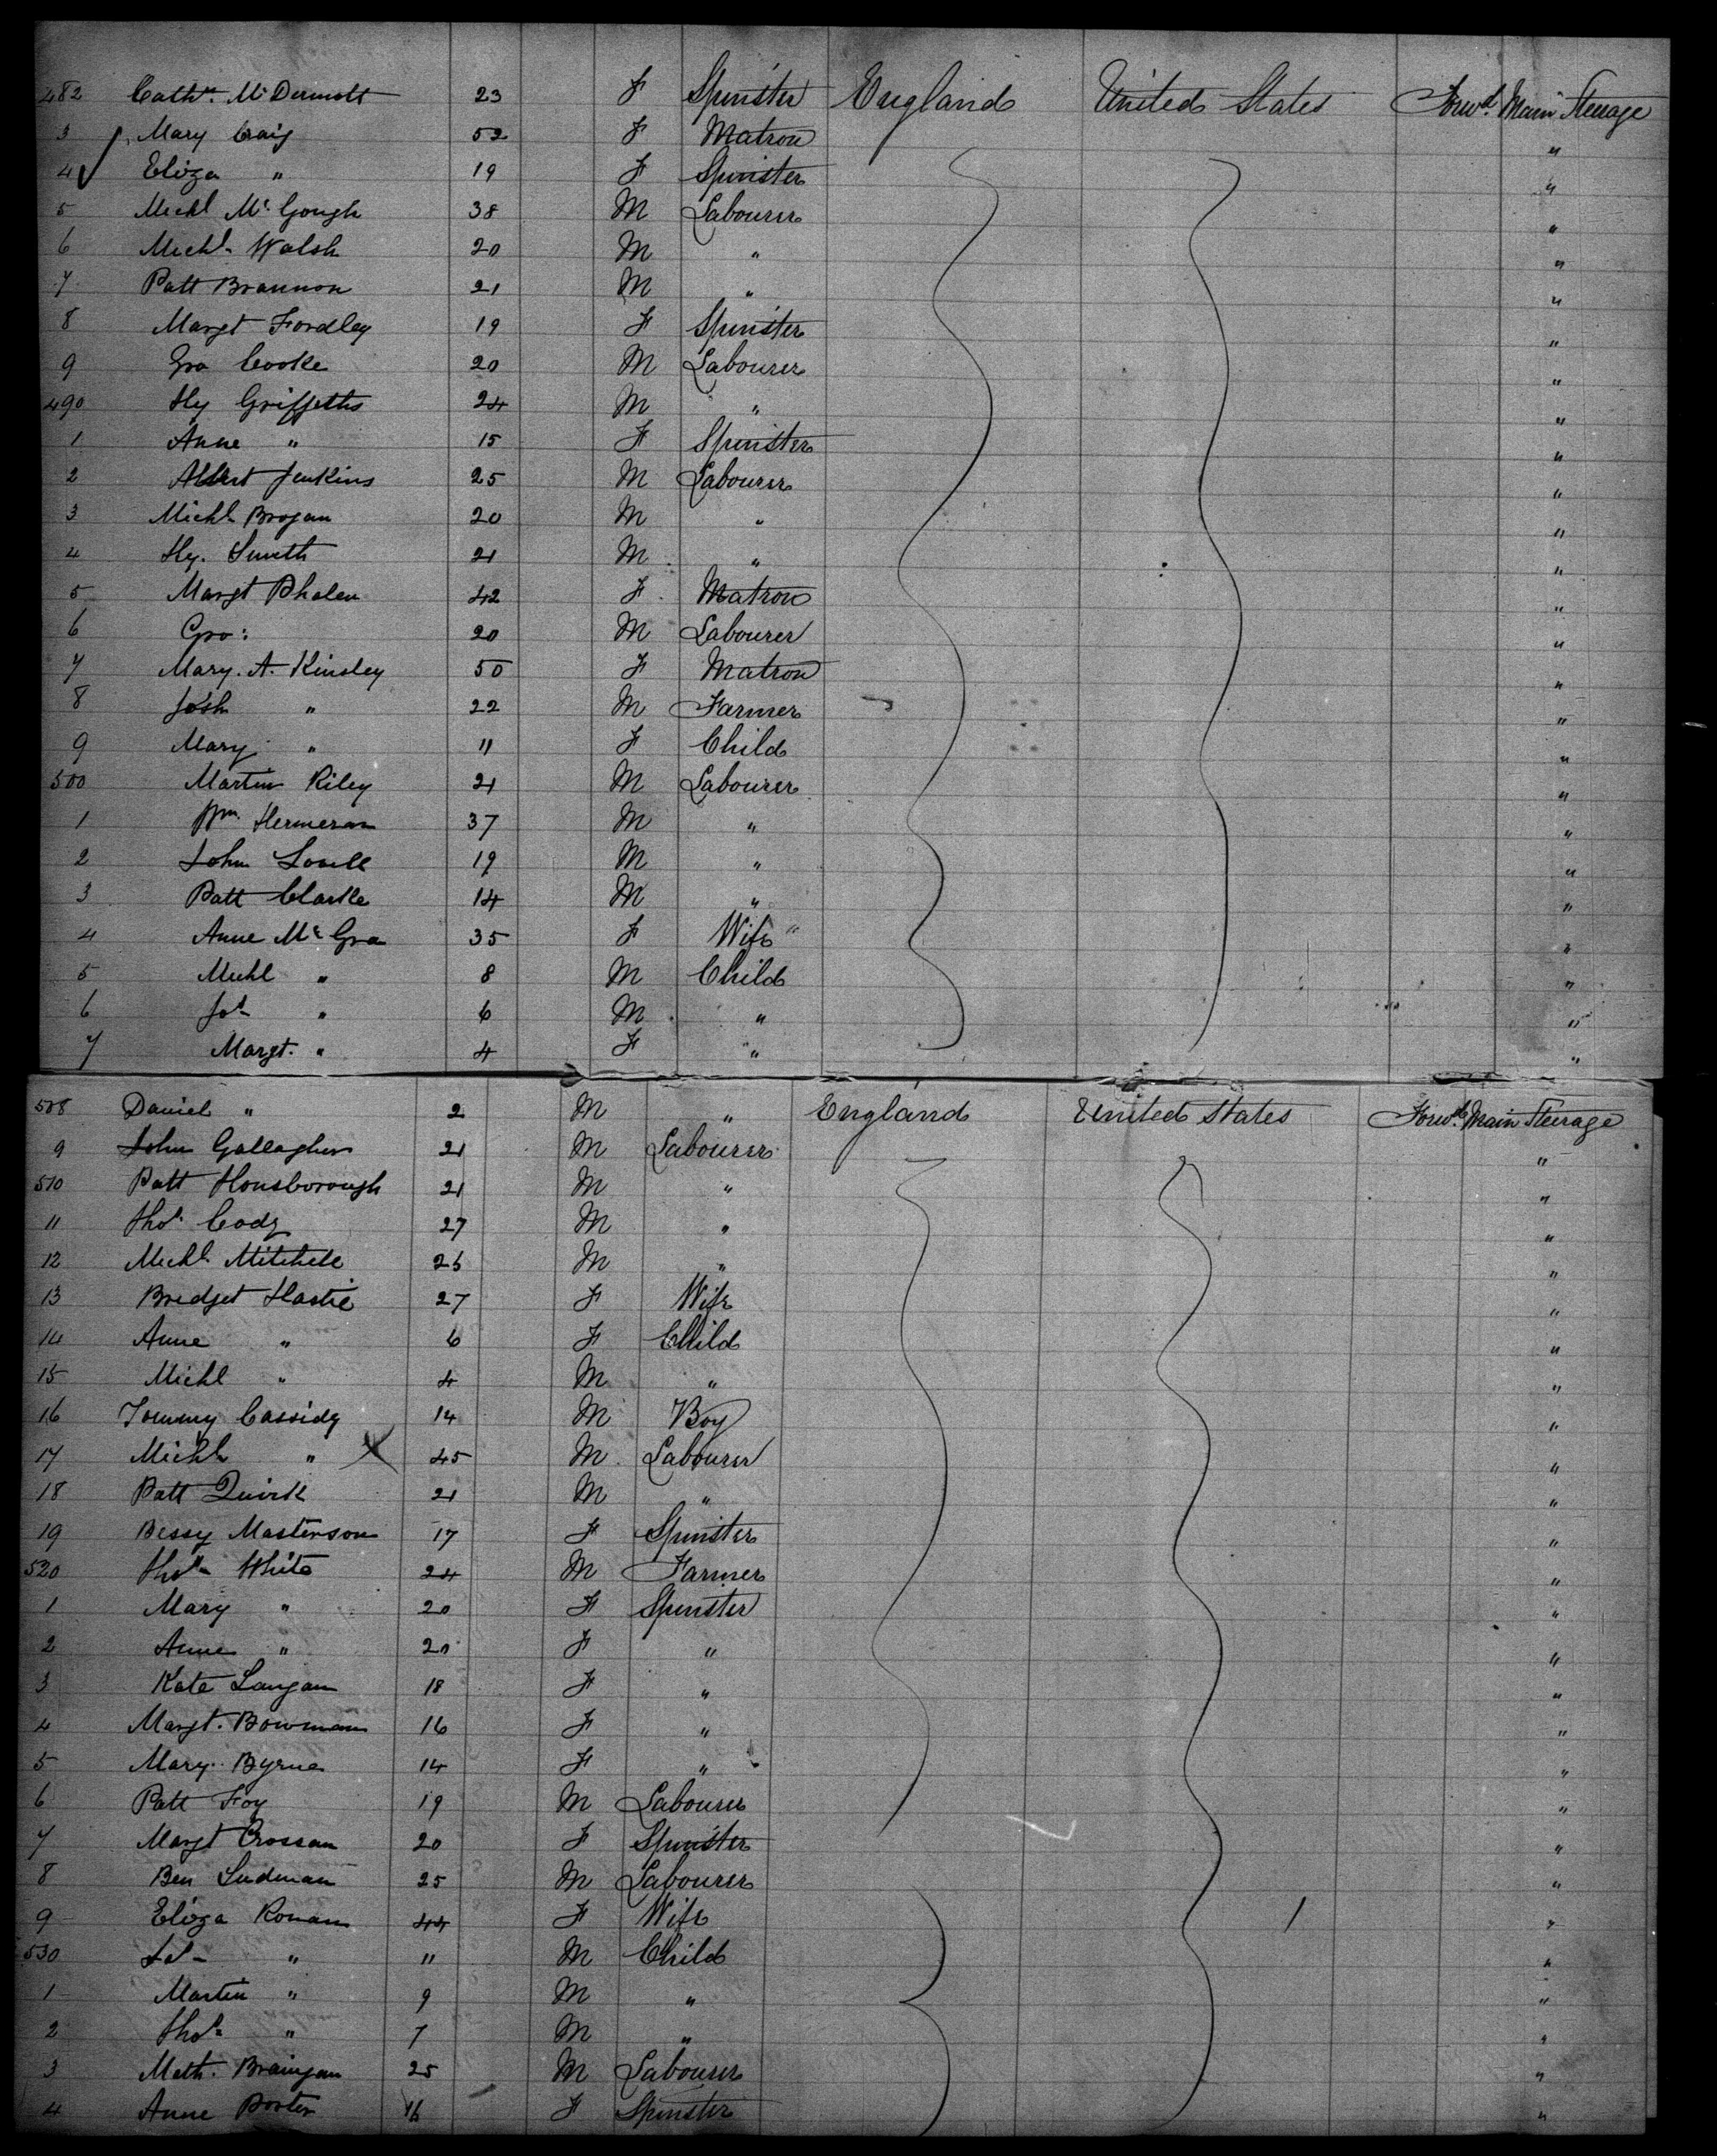 482 Cathn. McDermott 23 F Spinster England United States Forwd. Main Steerage
3 Mary Craig 52 F Matron "
4 Eliza " 19 F Spinster "
5 Michl McGough 38 M Labourer "
6 Michl. Walsh 20 M " "
7 Patt Brannon 21 M " "
8 Margt Fordley 19 F Spinster "
9 Geo Cooke 20 M Labourer "
490 Hy Griffeths 24 M " "
1 Anne " 15 F Spinster "
2 Albert Jenkins 25 M Labourer "
3 Michl Brogan 20 M " "
4 Hy. Smith 21 M " "
5 Margt Phalen 42 F Matron "
6 Geo: 20 M Labourer "
7 Mary. A. Kinsley 50 F Matron "
8 Josh " 22 M Farmer "
9 Mary " 11 F Child "
500 Martin Riley 21 M Labourer "
1 Wm. 37 M " "
2 John 19 M " "
3 Patt Clarke 14 M " "
4 Anne McGra 35 F Wife " "
5 Michl " 8 M Child "
6 Jos " 6 M " "
7 Margt. " 4 F " "
508 Daniel " 2 M " England United States Forwd. Main Steerage
9 John Gallagher 21 M Labourer "
510 Patt Honsborough 21 M " "
11 Thos. Cody 27 M " "
12 Michl Mitchell 26 M " "
13 Bridget Hastie 27 F Wife "
14 Anne " 6 F Child "
15 Michl " 4 M " "
16 Tommy Cassidy 14 M Boy "
17 Michl " X 45 M Labourer "
18 Patt Quirk 21 M " "
19 Bessy Masterson 17 F Spinster "
520 Thos White 24 M Farmer "
1 Mary " 20 F Spinster "
2 Anne " 20 F " "
3 Kate Langan 18 F " "
4 Margt. Bowman 16 F " "
5 Mary Byrne 14 F " "
6 Patt Foy 19 M Labourer "
7 Margt Crossan 20 F Spinster "
8 Ben Sudman 25 M Labourer "
9 Eliza Ronan 44 F Wife "
530 Jos " 11 M Child "
1 Martin " 9 M " "
2 Thos " 7 M " "
3 Math. 25 M Labourer "
4 Anne Porter 16 F Spinster "